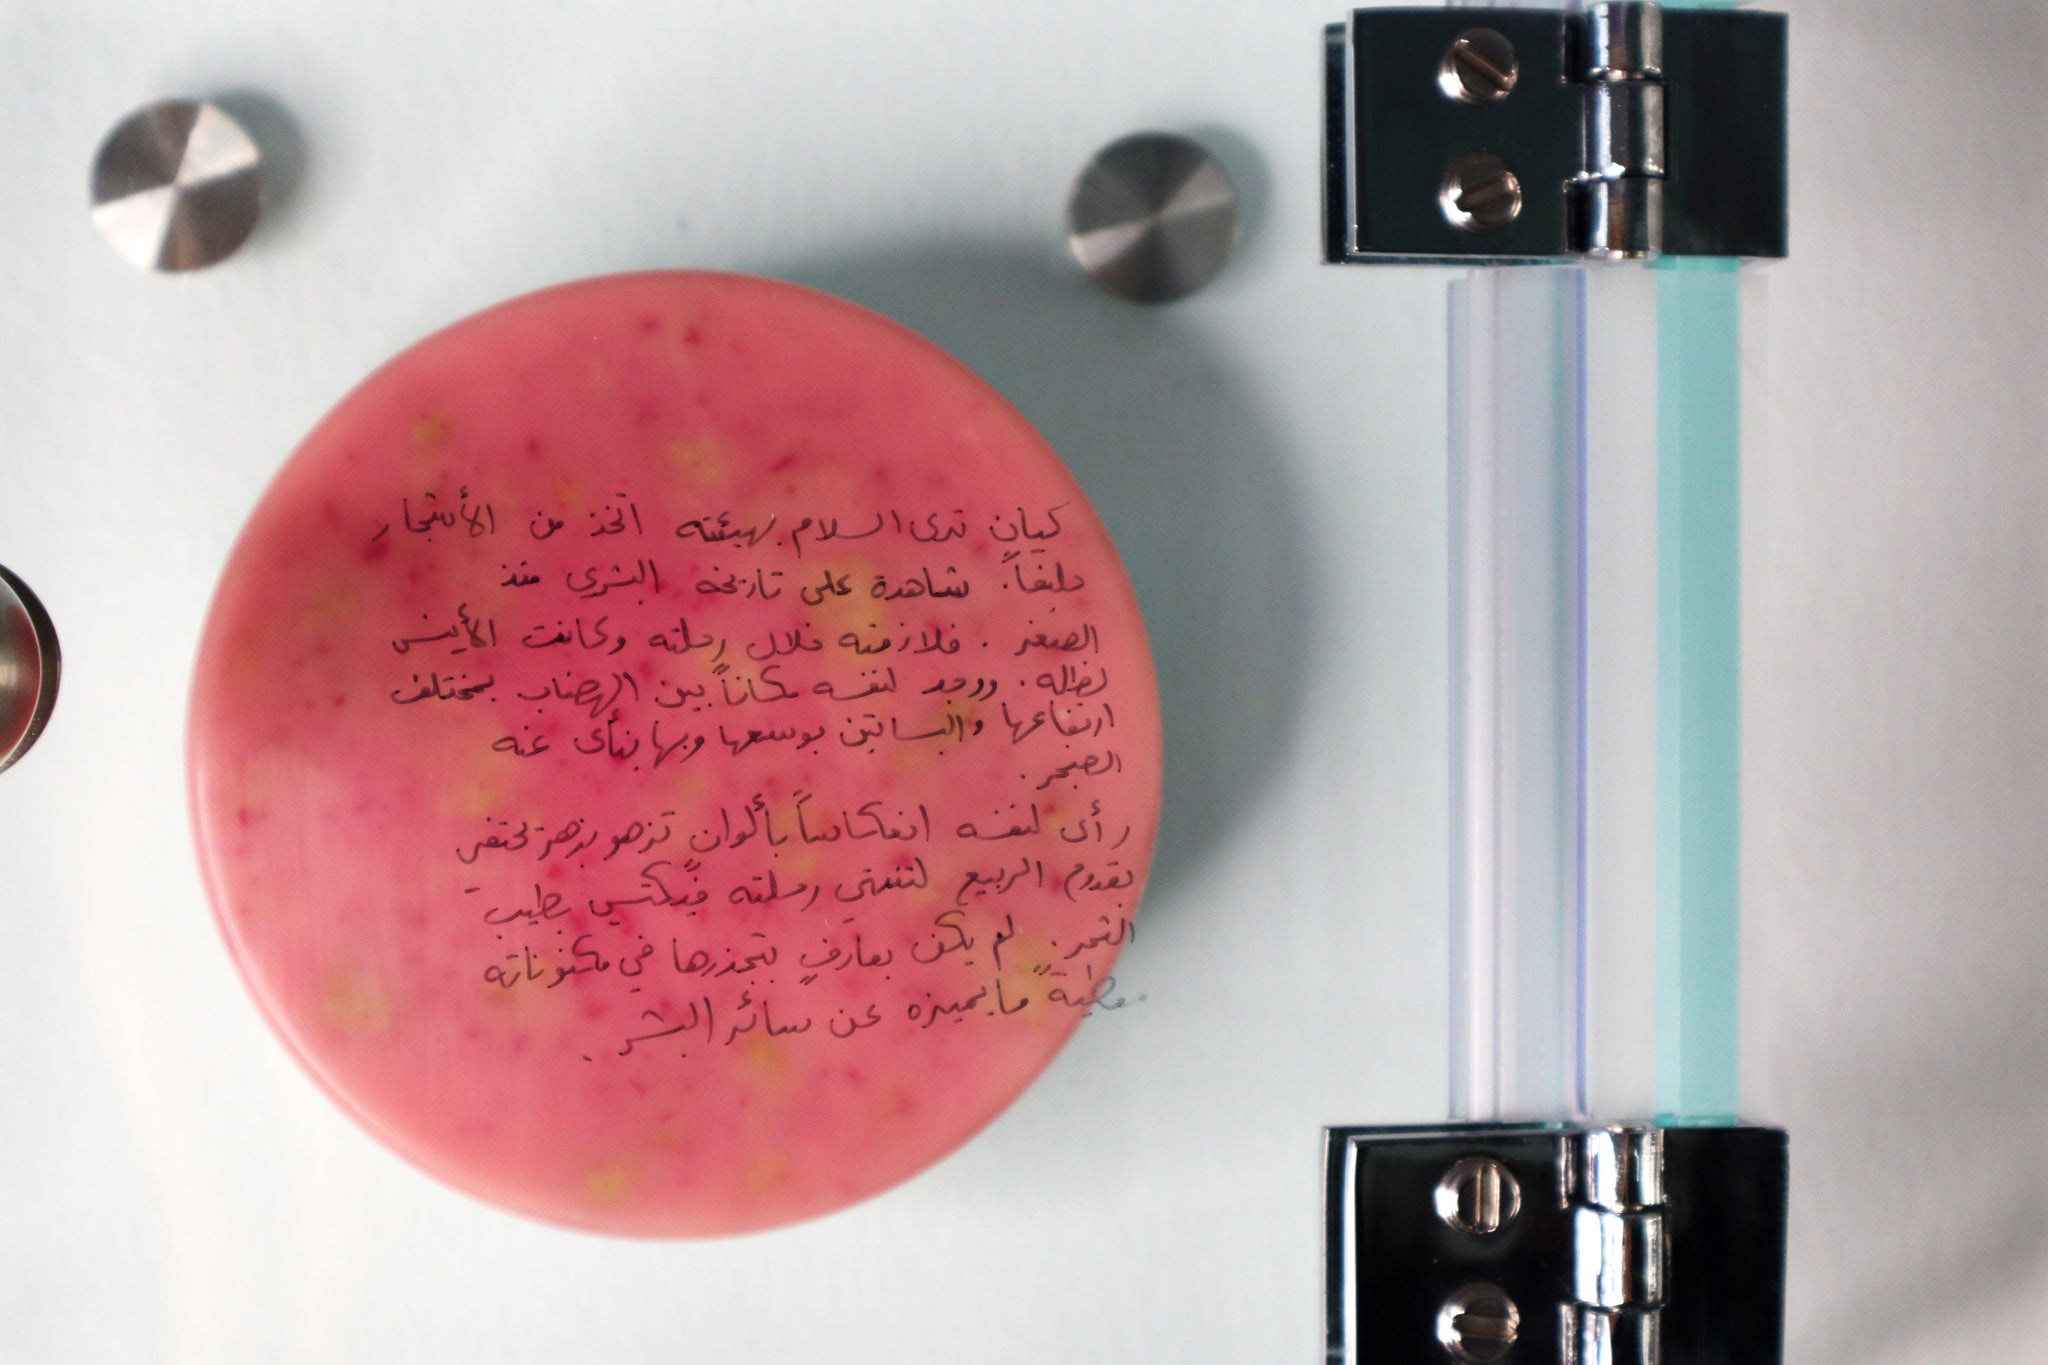 كيانٍ ترى السلام بهيئته اتخذ من الأشجار
حليفاً. شاهدة على تاريخه البشري منذ
الصغر. فلازمته خلال رحلته وكانت الأنيس
لظله. ووجد لنفسه مكاناً بين الهضاب بمختلف
ارتفاعها والبساتين بوسعها وبها ينأى عنه
الضجر.
رأى لنفسه انعكاساً بألوانٍ تزهو بزهرٍ تحتفي
بقدوم الربيع لتنتهي رحلته فيكتسي بطيب
الثمر. لم يكن بعارفٍ بتجذرها في مكنوناته
معطيةً ما يميزه عن سائر البشر.